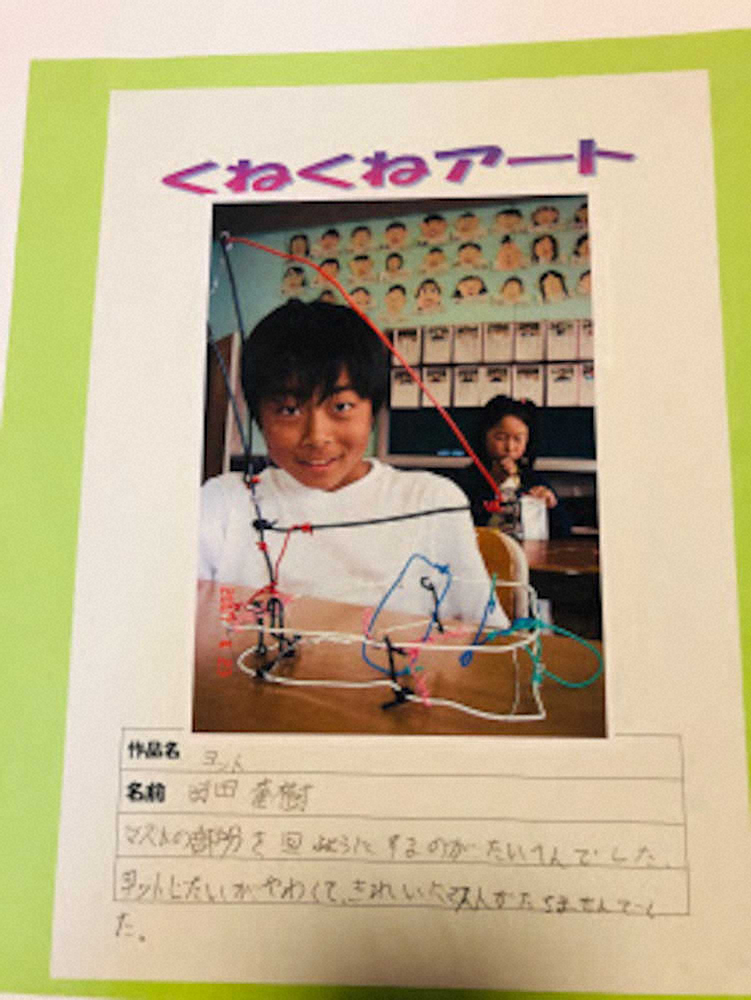 くねくねアート
作品名 ヨット
名前 時田
マストの部分を回るようにするのがたいへんでした。
ヨットじたいがやわくて、きれいにマストがたちませんでし
た。